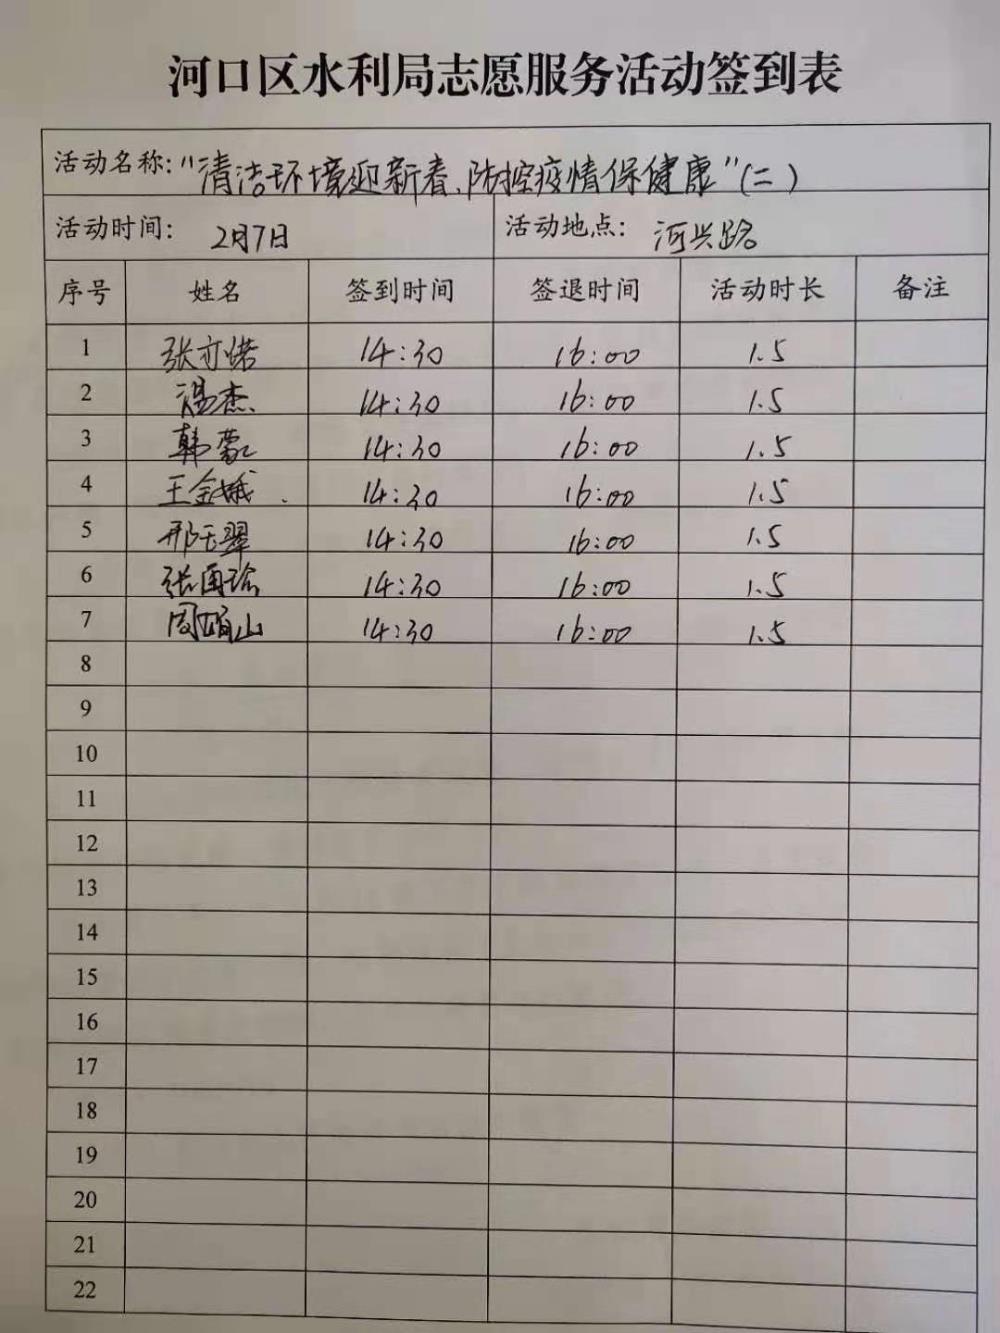 河口区水利局志愿服务活动签到表
活动名称:"清洁环境迎新春、防控疫情保健康"(二)
活动时间: 2月7日 活动地点: 河兴路
序号 姓名 签到时间 签退时间 活动时长 备注
1 张亦诺 14:30 16:00 1.5
2 温杰 14:30 16:00 1.5
3 韩蒙 14:30 16:00 1.5
4 王金娥 14:30 16:00 1.5
5 邢玉翠 14:30 16:00 1.5
6 张 14:30 16:00 1.5
7 周 山 14:30 16:00 1.5
8
9
10
11
12
13
14
15
16
17
18
19
20
21
22